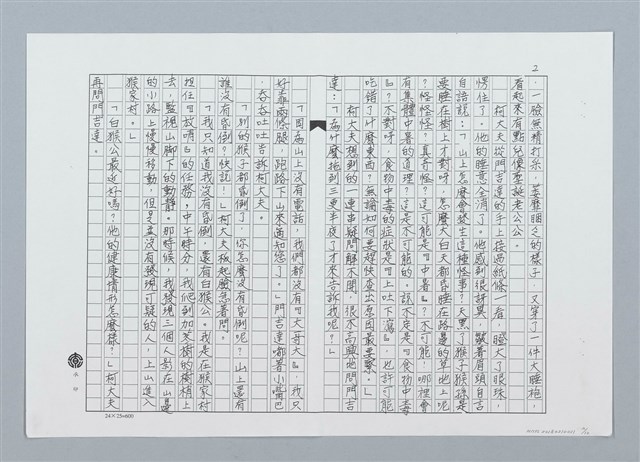 2
，一臉無精打采，萎靡睏乏的樣子，又穿了一件大睡袍，
看起來有點兒像聖誕老公公。
柯大夫從門吉達的手上接過紙條一看，瞪大了眼珠，
愣住了，他的睡意全消了。他感到很訝異，皺著眉頭自言
自語說：「山上怎麼會發生這種怪事？天黑了猴子猴孫是
要睡在樹上才對呀，怎麼大白天都昏睡在路邊的草地上呢
？怪怪怪？真奇怪？這可能是『中暑』？不可能！哪裡會
有集體中暑的道理？這是不可能的。說不定是『食物中毒
』？不對呀，食物中毒的症狀是『上吐下瀉』，也許可能
吃錯了什麼東西？無論如何要趕快查出原因最要緊。」
柯大夫想到的一連串疑問解不開，很不高興地問門吉
達：「為什麼拖到三更半夜了才來告訴我呢？」
「因為山上沒有電話，我們都沒有『大哥大』，我只
好靠兩條腿，跑路下山來通知您了。」門吉達嘟著小嘴巴
，吞吞吐吐告訴柯大夫。
「別的猴子都昏倒了，你怎麼沒有昏倒呢？山上還有
誰沒有昏倒？快說！」柯大夫板起臉急著問。
「我只知道我沒有昏倒，還有白猴公。我是在猴家村
擔任『放哨』的任務，中午時分，我爬到加苳樹的樹梢上
去，監視山腳下的動靜。那時候，我發現三個人影在山邊
的小路上慢慢移動，但是並沒有發現可疑的人，上山進入
猴家村。」
「白猴公最近好嗎？他的健康情形怎麼樣？」柯大夫
再問門吉達。
24×25=600